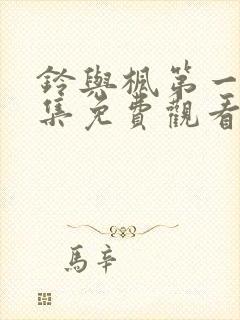 鈴與楓第一
集免費觀看
馬辛